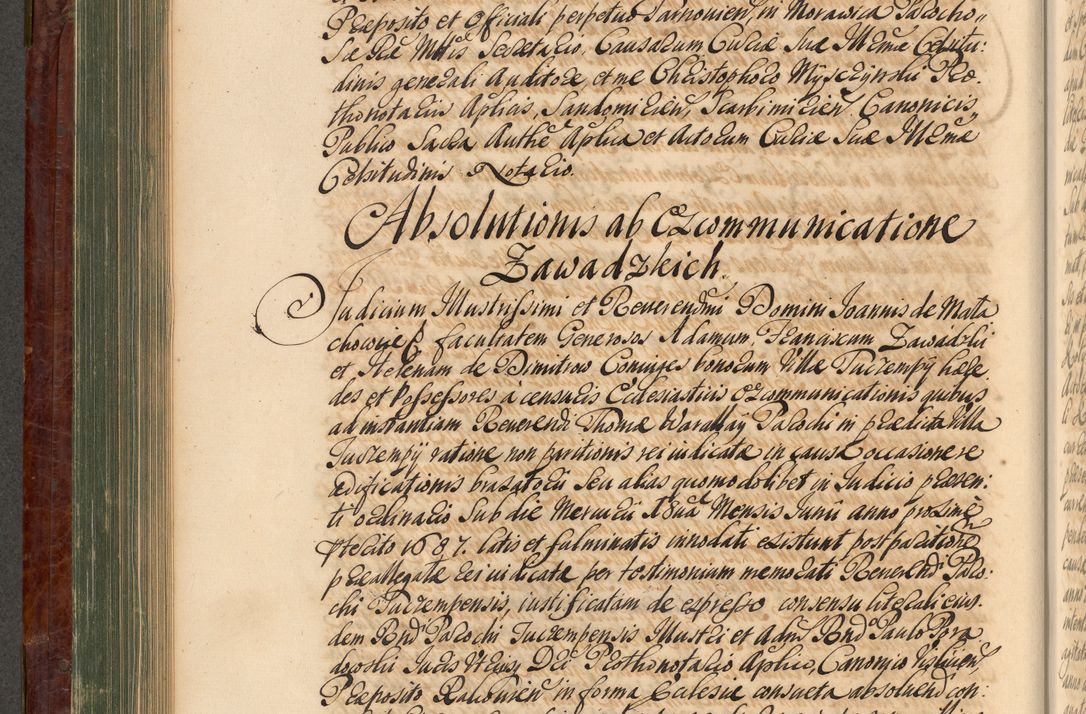 Præposito et Officiali perpetuo Tarnovien, in Morawica Parocho,
Sæ Ræ Mttis Secretario, Causarum Curiæ Suæ Illmæ Celsitu:
dinis generali Auditore et me Christophoro Myszczynski Pro:
thonotariis Aplicis, Sandomirien, Scarbimirien Canonicis,
Publico Sacra Authe Aplica et Actorum Curiæ Suæ Illmæ
Celsitudinis Notario.
Absolutionis ab Excommunicatione
Zawadzkich.
Judicium Illustrissimi et Reverendmi Domini Joannis de Mała
chowice facultatem Generosos Adamum, Franciscum Zawadzki
et Helenam de Dimitrow Coniuges bonorum Villæ Tuczempÿ hære
des et Possessores à censuris Ecclesiasticis Excommunicationis quibus
ad instantiam Reverendi Thomæ Parochi in prædicta Villa
Tuczempÿ ratione non paritionis rei iudicatæ in causa occasione re
ædificationis braxatorii seu alias quomodolibet in Judicio præsen:
ti ordinario sub die Mercurii 18va Mensis Junii anno proxime
præterito 1687. latis et fulminatis innodati existunt post paritione
præallegatæ rei iudicatæ per testimonium memorati Reverend Paro:
chi Tuczempensis, iustificatam de expresso consensu literali eius:
dem Rnd Parochi Tuczempensis Illustri et Adm Rnd Paulo Pora
doski Juris Utrius, Dri Prothonotario Aplico, Canonico Vislicien,
Præposito in forma Eclesiæ consueta absolvend con: